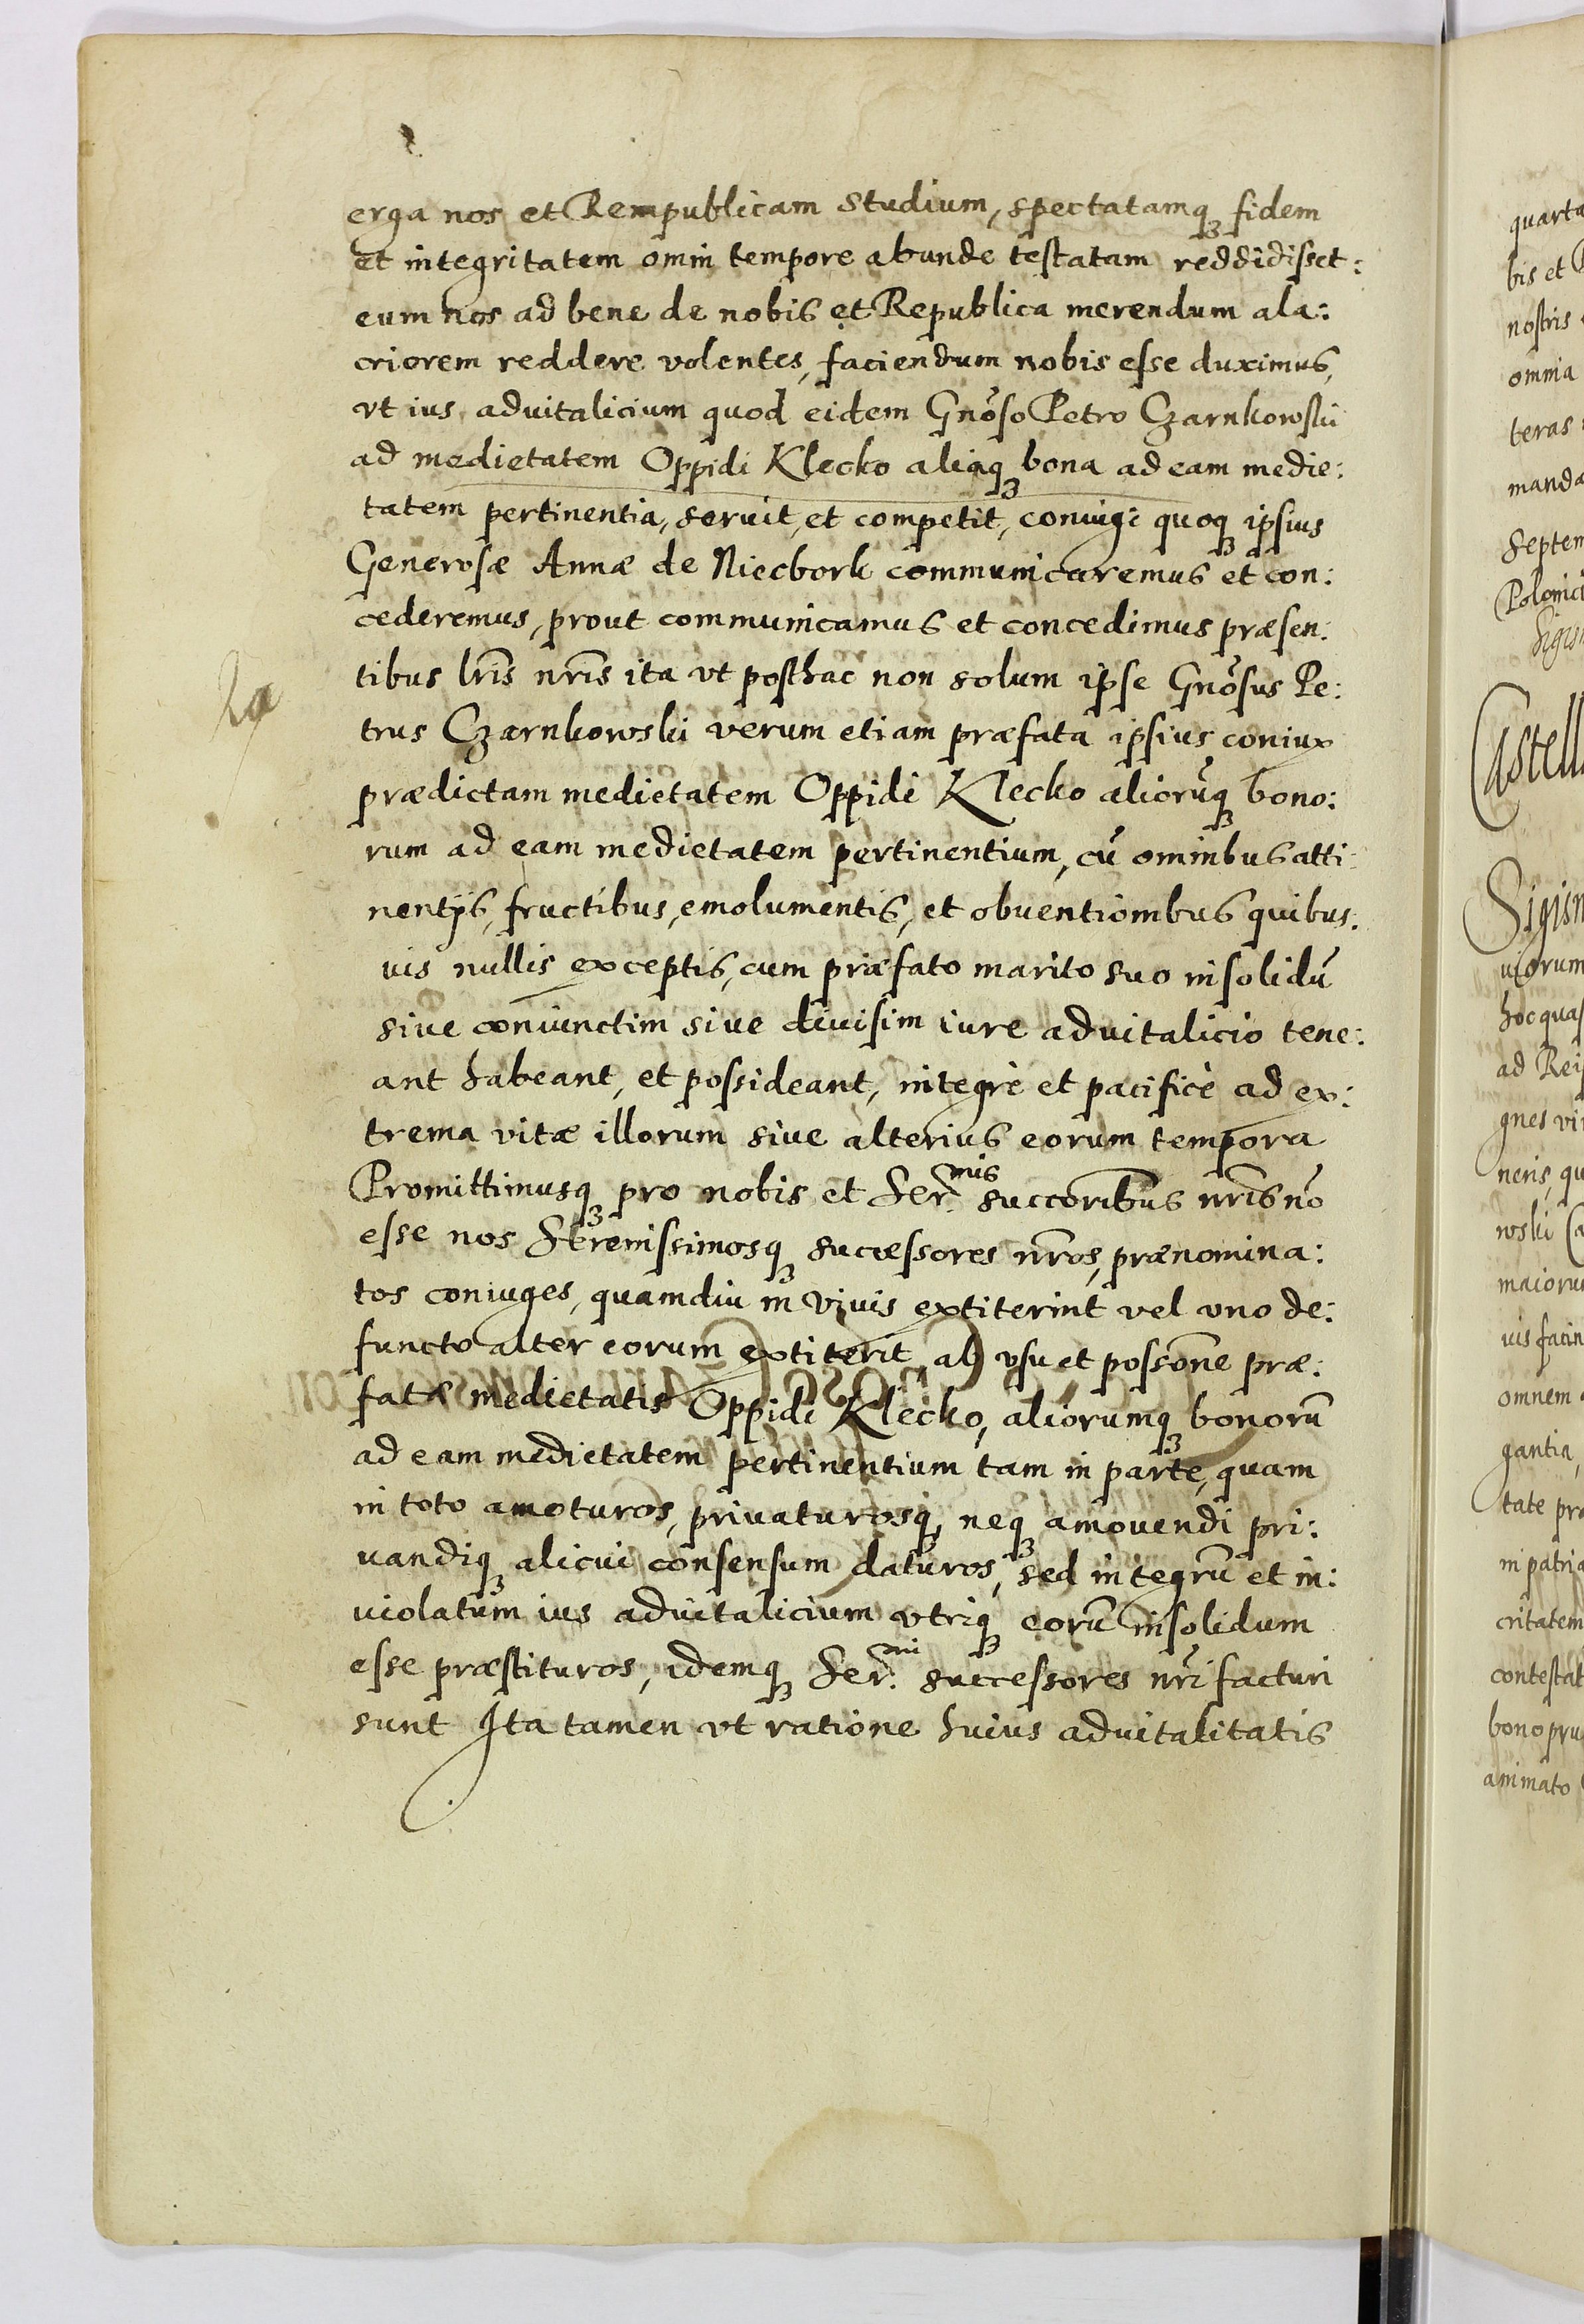 erga nos et Rempublicam studium, spectatamq₃ fidem
et integritatem omni tempore abunde testatam reddidisset:
eum nos ad bene de nobis et Republica merendum ala:
criorem reddere volentes, faciendum nobis esse duximus,
vt ius aduitalicium quod eidem Gnõso Petro Czarnkowski
ad medietatem Oppidi Klecko aliaq₃ bona ad eam medie:
tatem pertinentia, seruit, et competit, coniugi quoq₃ ipsius
Generosæ Annæ de Niecbork communicaremus et con:
cederemus, prout communicamus et concedimus præsen:
tibus lr̃is nr̃is ita vt posthac non solum ipse Gnõsus Pe:
trus Czarnkowski verum etiam præfata ipsius coniux
prædictam medietatem Oppidi Klecko aliorũq₃ bono:
rum ad eam medietatem pertinentium, cũ omnibus atti:
nentijs, fructibus, emolumentis, et obuentionibus quibus:
uis nullis exceptis, cum præfato marito suo insolidũ
siue coniunctim siue diuisim iure aduitalicio tene:
ant habeant, et possideant, integrè et pacificè ad ex:
trema vitæ illorum siue alterius eorum tempora
Promittimusq₃ pro nobis et Ser.mis succoribus nr̃is nõ
esse nos Serenissimosq₃ successores nr̃os, prænomina:
tos coniuges, quamdiu in viuis extiterint vel vno de:
functo alter eorum extiterit, ab vsu et possõne præ:
fatæ medietatis Oppidi Klecko, aliorumq₃ bonorũ
ad eam medietatem pertinentium tam in parte, quam
in toto amoturos, priuaturosq₃, neq₃ amouendi pri:
uandiq₃ alicui consensum daturos, sed integrũ et in:
uiolatum ius aduitalicium vtriq₃ eorũ insolidum
esse præstituros, idemq₃ Ser.mi successores nr̃i facturi
sunt Ita tamen vt ratione huius aduitalitatis
quarta
bis et
nostris
omnia
teras
manda
Septem
Polonici
Sigis
Castell
Sigism
uiorum
hoc quas
ad Rei
gnes vi
neris, qu
wski
maioru
uis facin
omnem
gantia,
tate pro
in patria
critatem
contestat
bono pru
animato